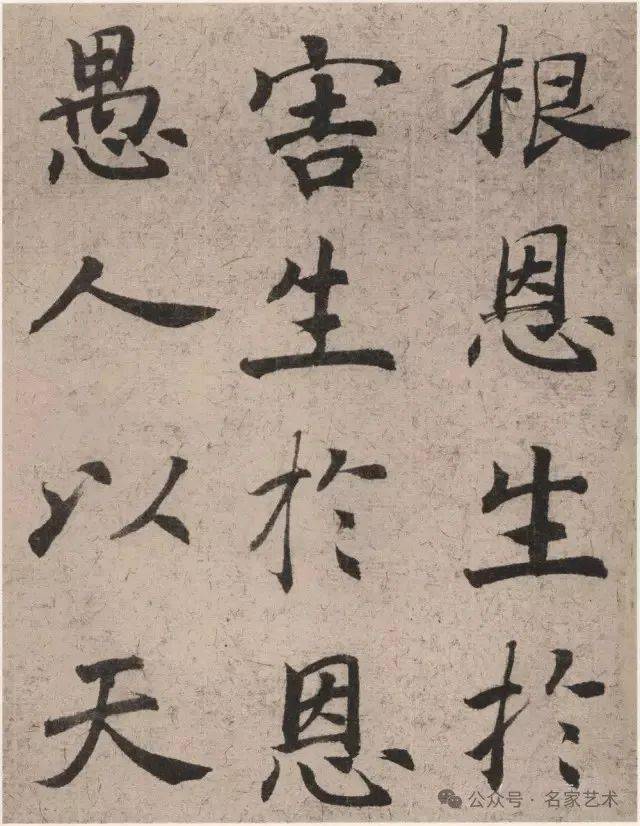 根恩生於
害生於恩
愚人以天
公众号·名家艺术